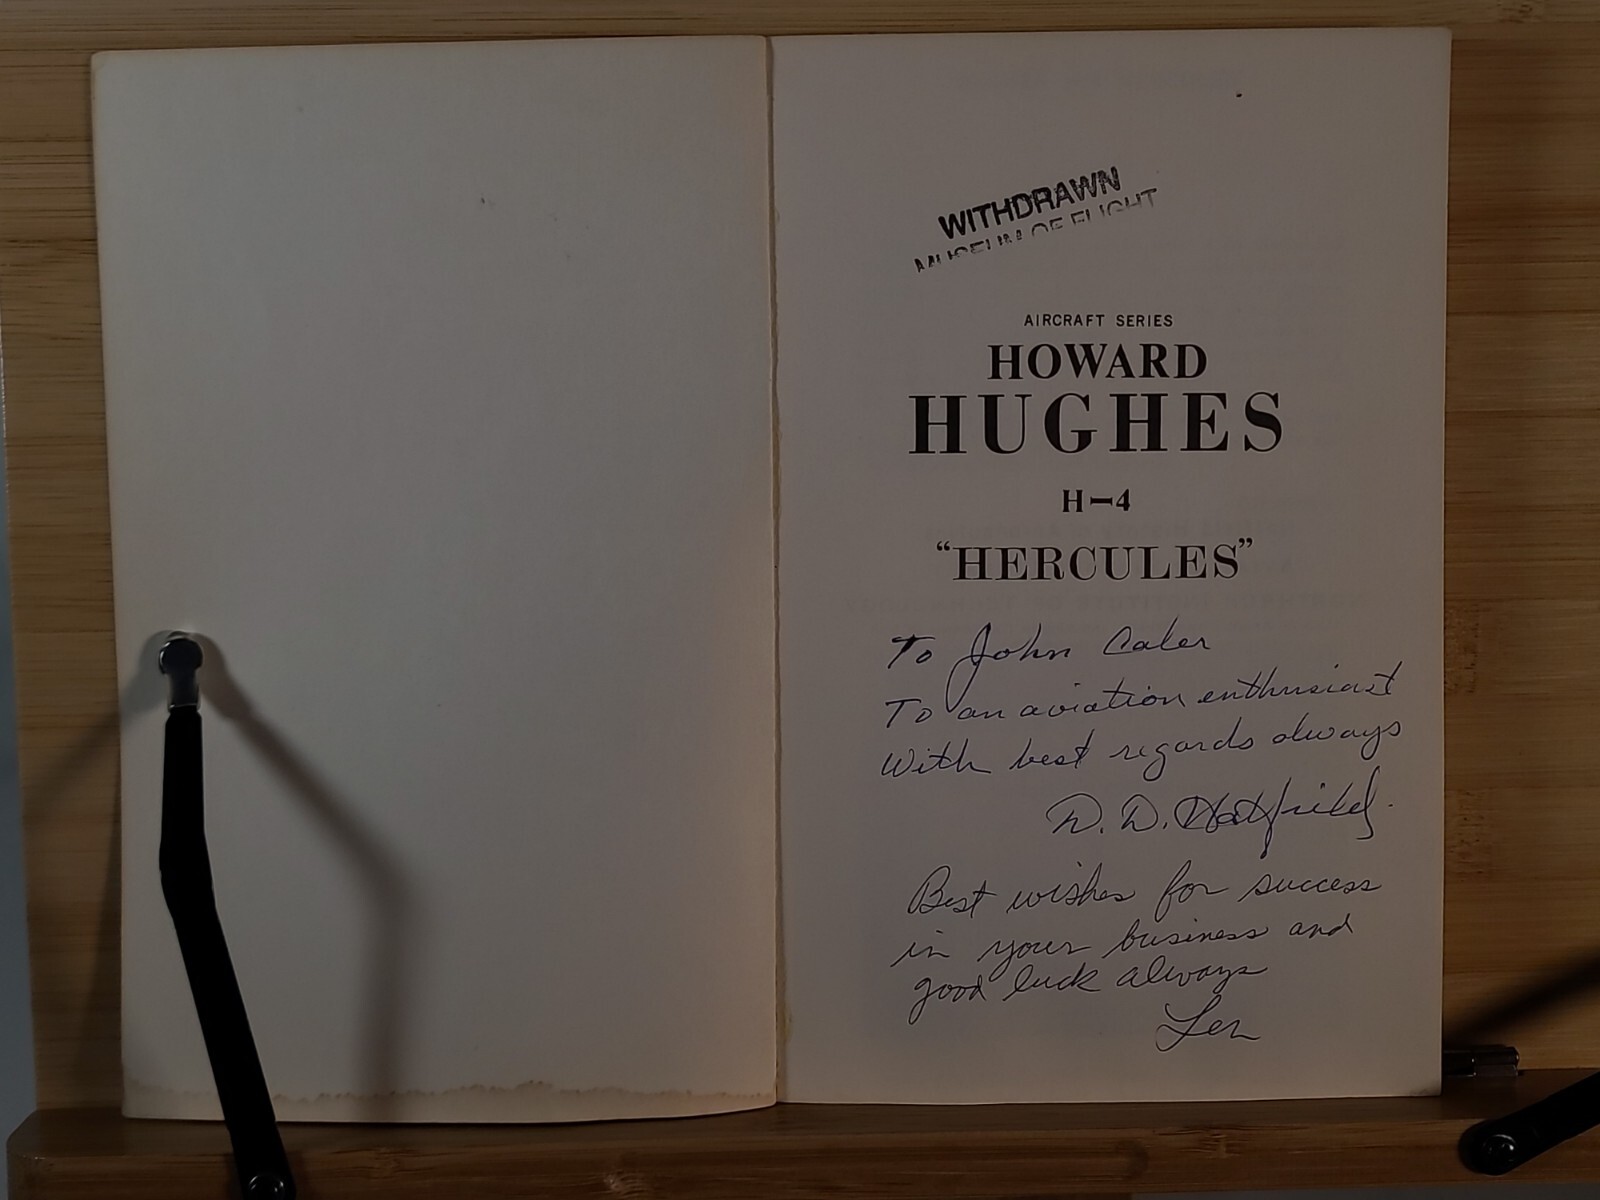 WITHDRAWN
MUSEUM OF FLIGHT
AIRCRAFT SERIES
HOWARD
HUGHES
H—4
"HERCULES"
To John Caler
To an aviation enthusiast
With best regards always
D. D. Hatfield.
Best wishes for success
in your business and
good luck always
Len